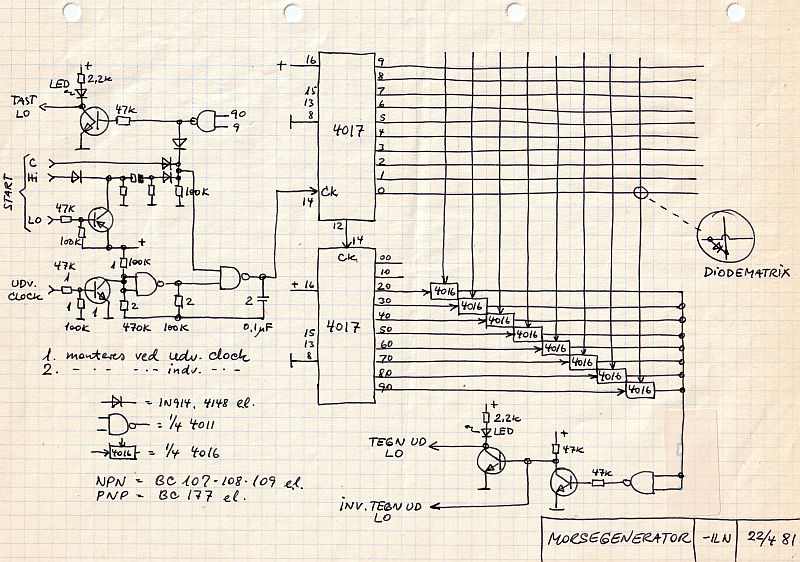 +
2,2K
LED
TAST
LO
47K
90
9
START
C
Hi
LO
47K
100K
100K
+
1
100K
47K
UDV.
CLOCK
1
1
100K
2
470K
2
100K
2
0,1µF
+
16
15
13
8
4017
CK
14
9
8
7
6
5
4
3
2
1
0
12
14
CK
+ 16
15
13
8
4017
00
10
20
30
40
50
60
70
80
90
4016
4016
4016
4016
4016
4016
4016
4016
DIODEMATRIX
1. monteres ved udv. clock
2. - " - - " - indv. - " -
= 1N914, 4148 el.
= 1/4 4011
4016 = 1/4 4016
NPN = BC 107-108-109 el.
PNP = BC 177 el.
+
2,2K
LED
TEGN UD
LO
+
47K
47K
INV. TEGN UD
LO
MORSEGENERATOR -ILN 22/4 81